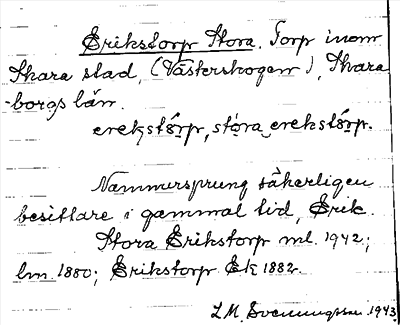 Erikstorp Stora. Torp inom
Skara stad, (Västerskogen), Skara
borgs län.
erekstårp, stóra erekstårp.
Namnursprung säkerligen
besittare i gammal tid, Erik.
Stora Erikstorp ml. 1942;
lm. 1880; Erikstorp Ek 1882.
L M. Svenungsson 1943.